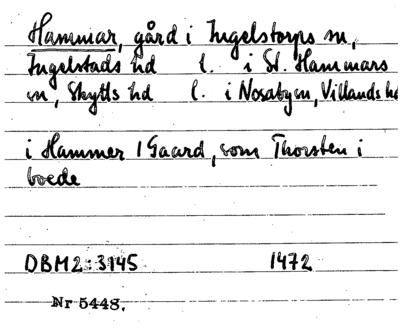 Hammar, gård i Ingelstorps sn,
Ingelstads hd l. i St. Hammars
sn, Skytts hd l. i Nosaby sn, Villands hd
i Hammer 1 Gaard, som Thorsten i
boede
DBM2:3145 1472
Nr 5448.